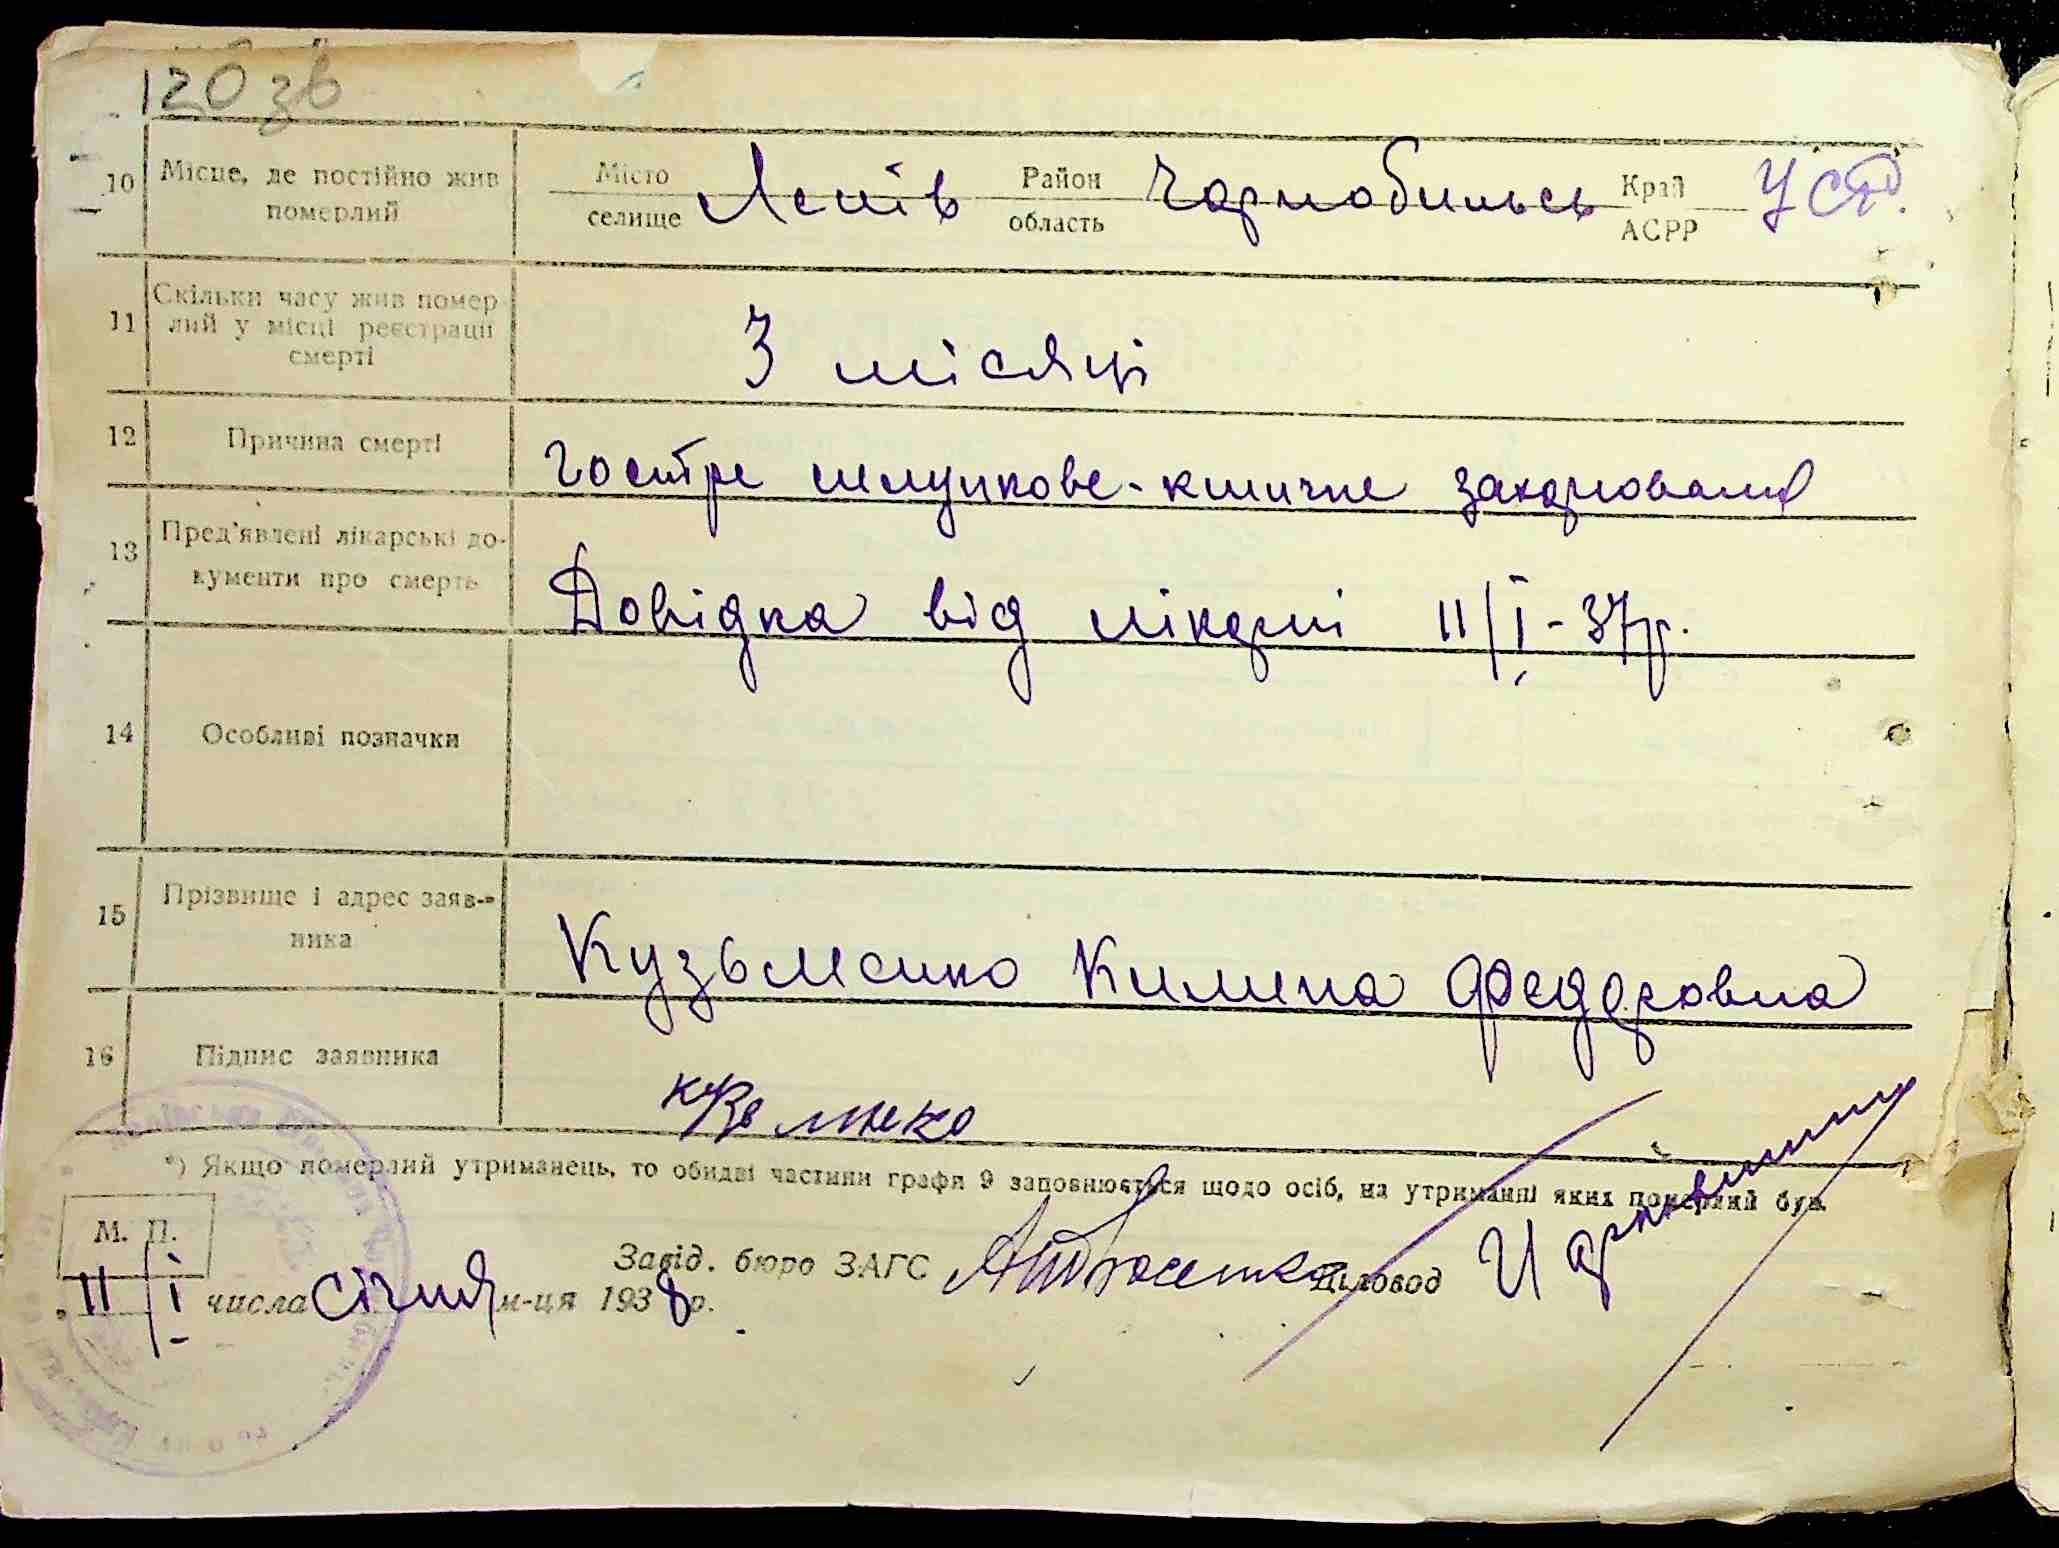 120 зв
10 Місце, де постійно жив померлий Місто селище Лелів Район область Чорнобильсь Край АСРР УСРР.
11 Скільки часу жив померлий у місці реєстрації смерті
3 місяці
12 Причина смерті гостре шлункове-кишкне захорювання
13 Пред'явлені лікарські документи про смерть Довідка від лікарні 11/I-37р.
14 Особливі позначки
15 Прізвище і адрес заявника Кузьменко Килина Федоровна
16 Підпис заявника
*) Якщо померлий утриманець, то обидві частини графи 9 заповнюється щодо осіб, на утриманні яких померлий був.
М. П.
Завід. бюро ЗАГС Діловод
„11/I числа січня м-ця 1938 р.